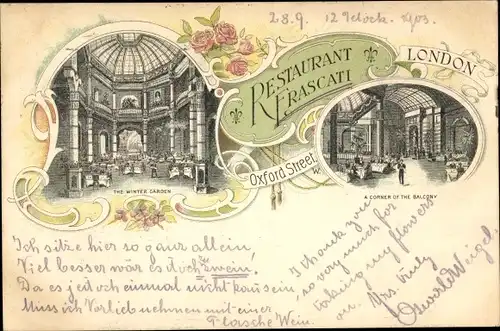 28.9. 12 o'clock. 1903.
RESTAURANT FRASCATI
LONDON
Oxford Street. W.
THE WINTER GARDEN
A CORNER OF THE BALCONY
Ich sitze hier so ganz allein,
Viel besser wär es doch zu zwein.
Da es jedoch einmal nicht kann sein,
Muss ich Vorlieb nehmen mit einer
Flasche Wein.
I thank you
so very much for
taking my flowers
on. Yrs truly
Oswald Weigel.